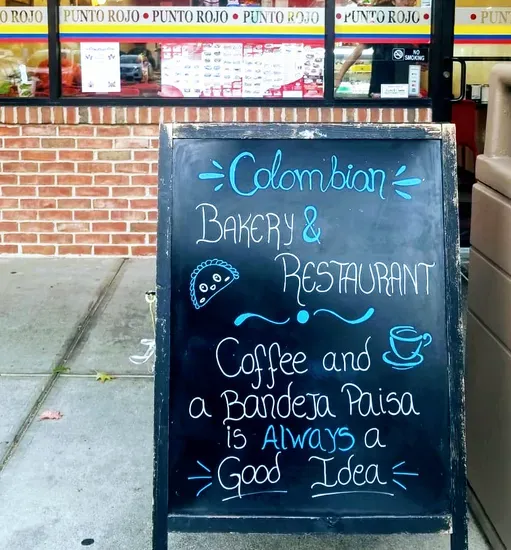 PUNTO ROJO • PUNTO ROJO • PUNTO ROJO PUNTO ROJO • PUNT
NO
SMOKING
Colombian
BAKERY &
RESTAURANT
Coffee and
a BandeJa Paisa
is Always a
Good Idea